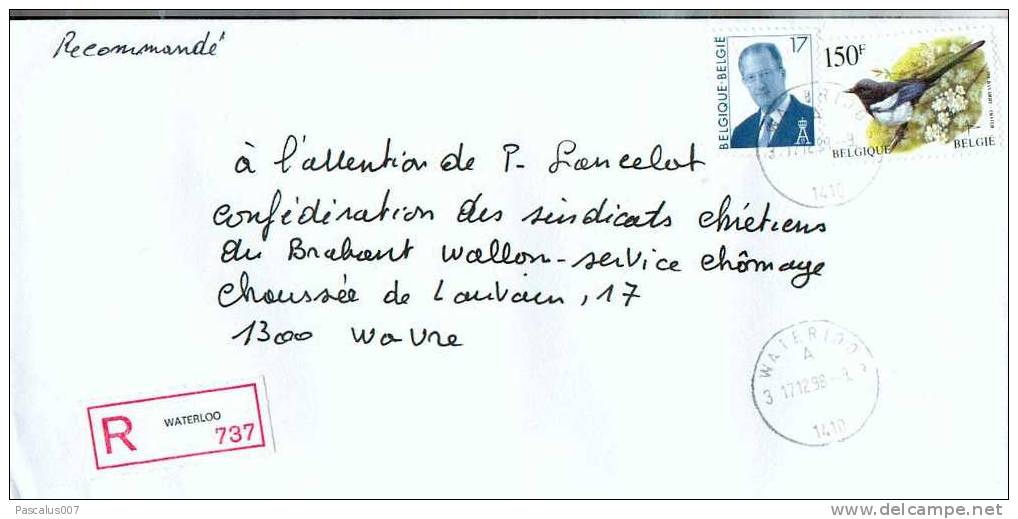 Recommandé
17
BELGIQUE-BELGIË
150F
BELGIQUE BELGIË
à l'attention de P. Lancelot
confédération des sindicats chrétiens
du Brabant Wallon-service chômage
Choussée de Louvain, 17
1300 Wavre
R WATERLOO 737
WATERLOO
A
3 17 12 98
1410
1410
Pascalus007
delcampe.net